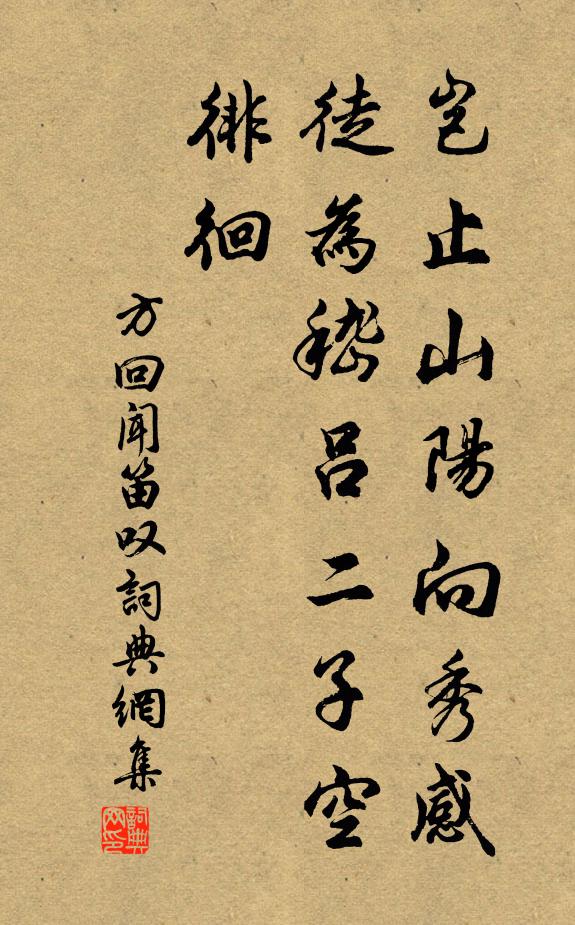 豈止山陽向秀感
徒為嵇呂二子空
徘徊
方回聞笛叹詞典網集
詞典网印